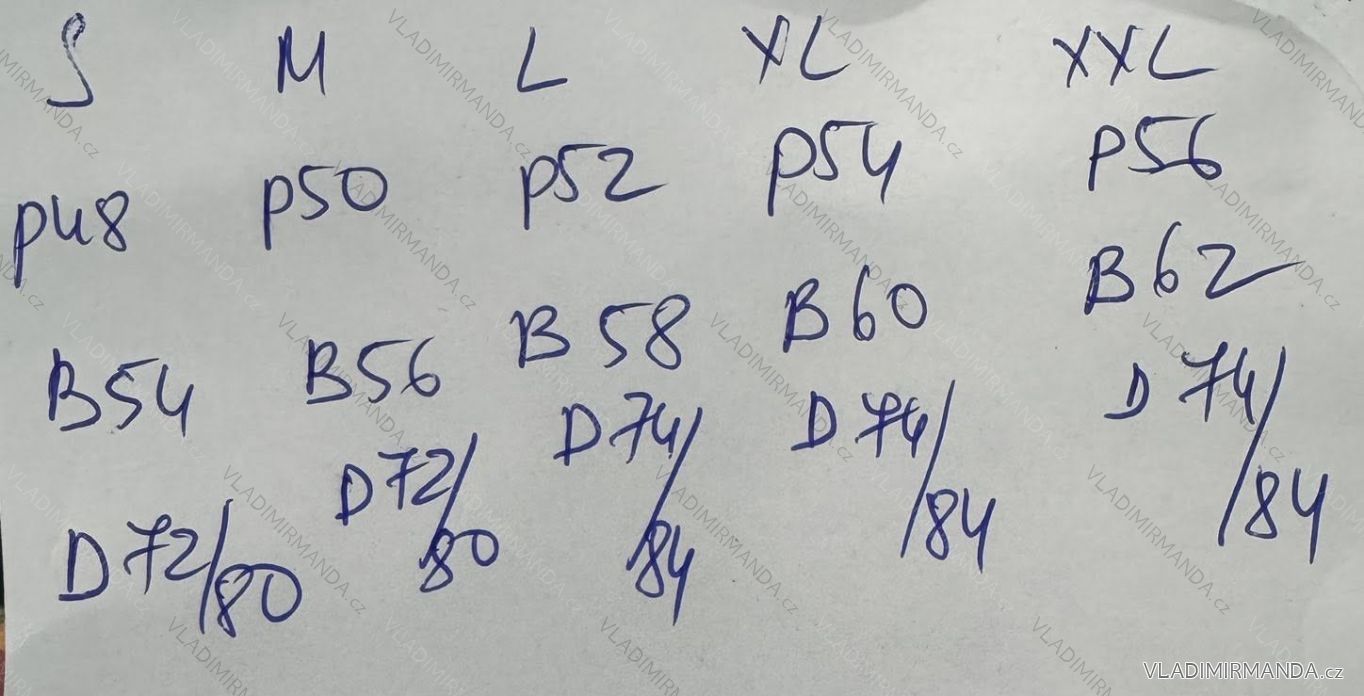 S M L XL XXL
P48 P50 P52 P54 P56
B54 B56 B58 B60 B62
D72/80 D72/80 D74/84 D74/84 D74/84
VLADIMIRMANDA.cz